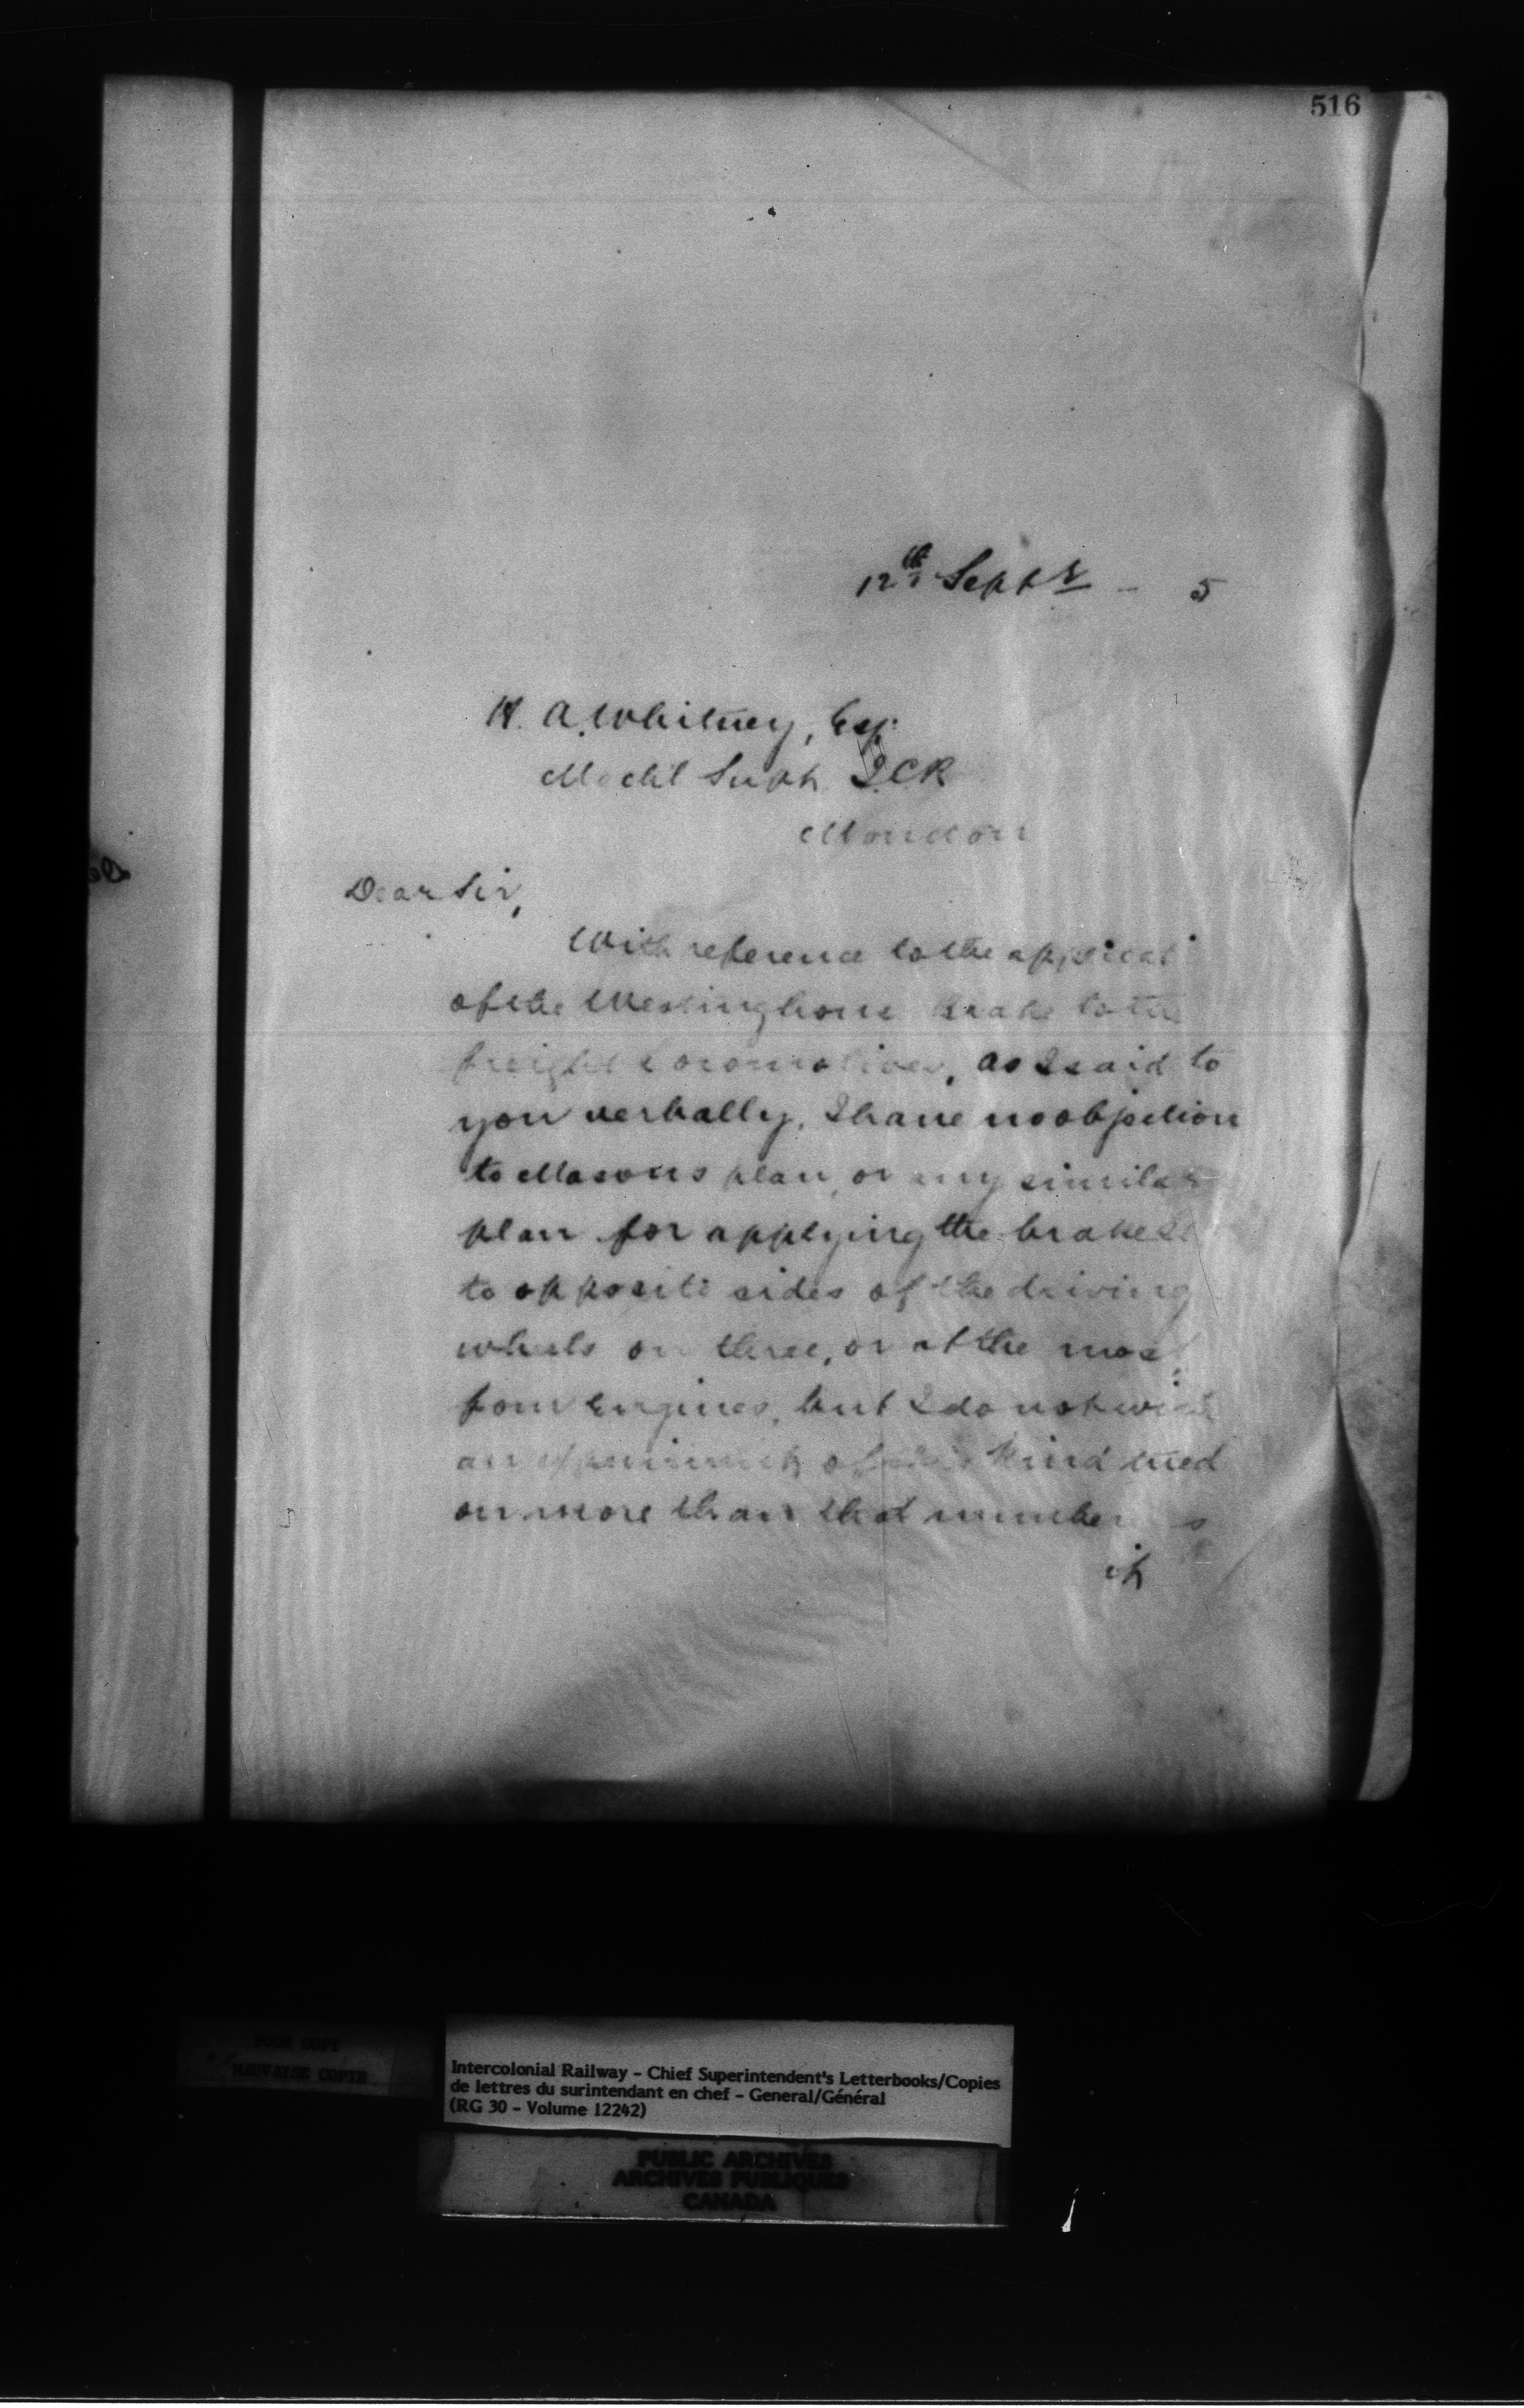 516
12th Septr - 5
H. A. Whitney, Esq.
Mechl Supt. ICR
Moncton
Dear Sir,
With reference to the applicat
of the Westinghouse Brake to the
freight Locomotives, as I said to
you verbally, I have no objection
to Masons plan, or any similar
plan for applying the brakes
to opposite sides of the driving
wheels on three, or at the most
four Engines, but I do not wish
an experiment of this kind tried
on more than that number
it
POOR COPY
MAUVAISE COPIE
Intercolonial Railway - Chief Superintendent's Letterbooks/Copies
de lettres du surintendant en chef - General/Général
(RG 30 - Volume 12242)
PUBLIC ARCHIVES
ARCHIVES PUBLIQUES
CANADA